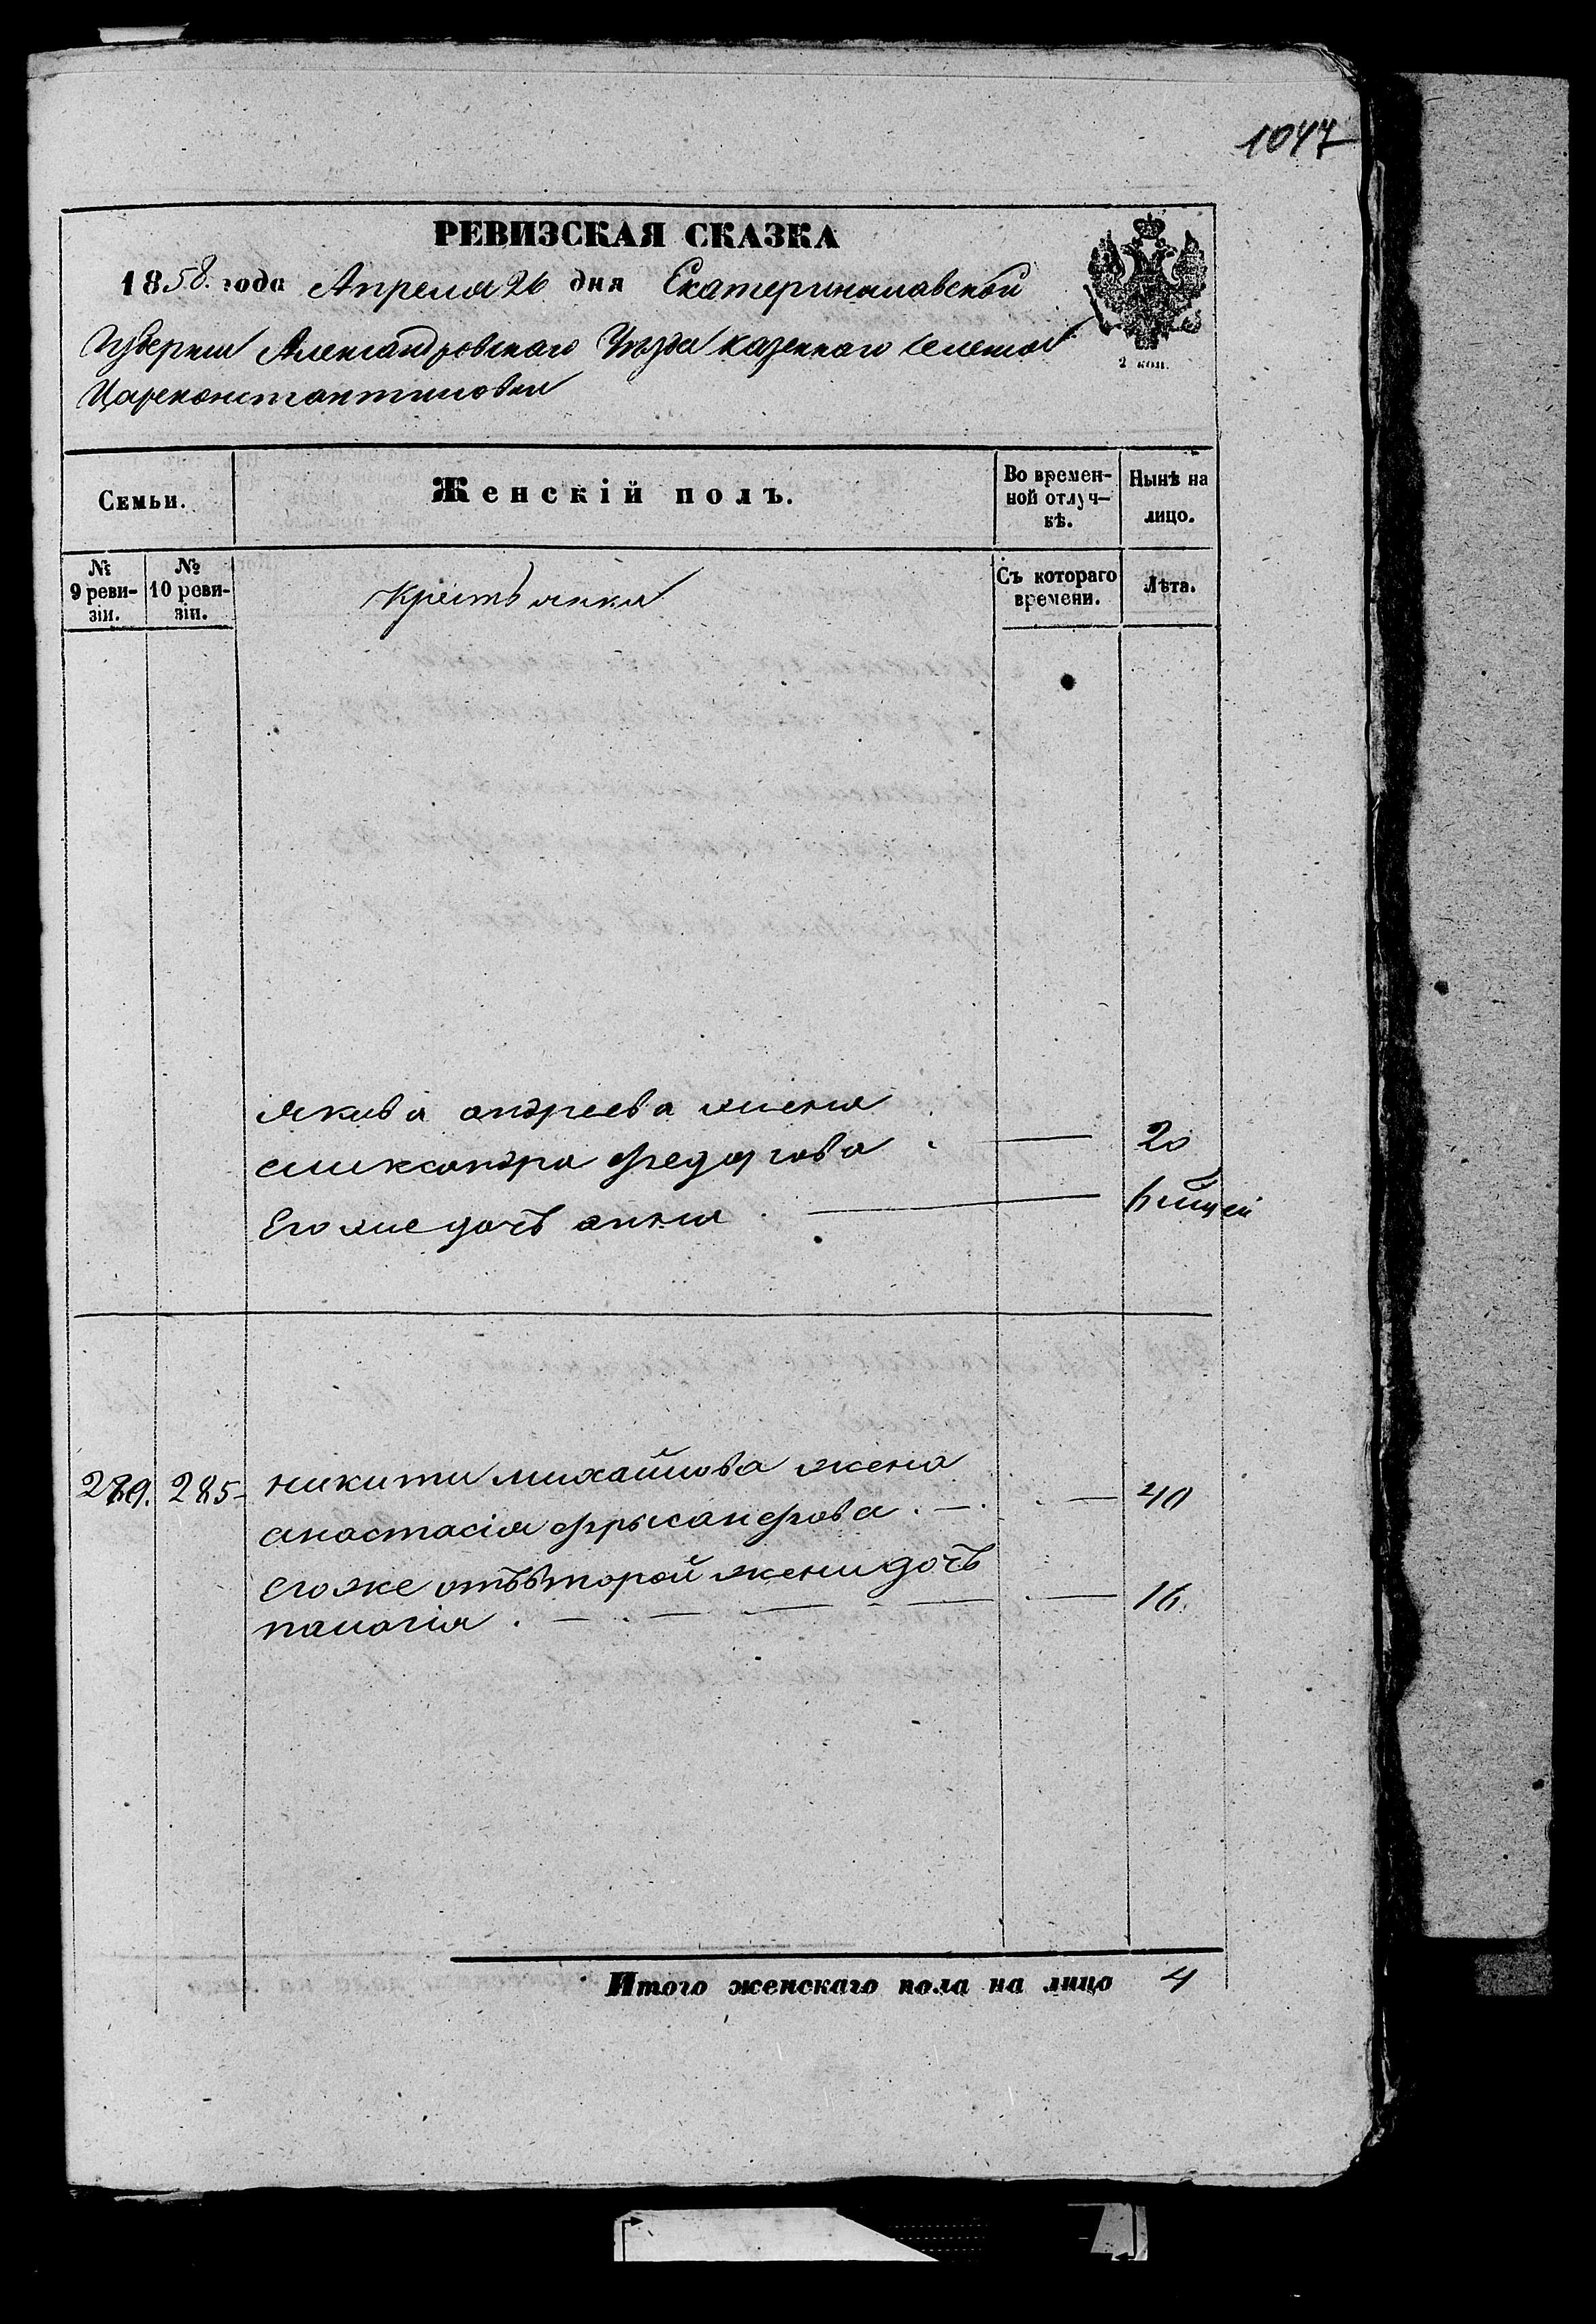 1047
РЕВИЗСКАЯ СКАЗКА
1858. года Апреля 26 дня Екатеринославской
Губернии Александровскаго Уѣзда казеннаго селения
Цареконстантиновки
2 коп.
Семьи.
Женскій полъ.
Во времен-
ной отлуч-
кѣ.
Нынѣ на
лицо.
№
9 реви-
зіи.
№
10 реви-
зіи.
Крестьянки
Съ котораго
времени.
Лѣта.
якова андреева жена
александра федорова . — 20
его же дочь анна . — 6 мцей
279. 285- никити михайлова жена
анастасія хрысанфова . — . — 40
его же отъ второй жени дочь
палагія . — . — — - — . — 16.
Итого женскаго пола на лицо 4